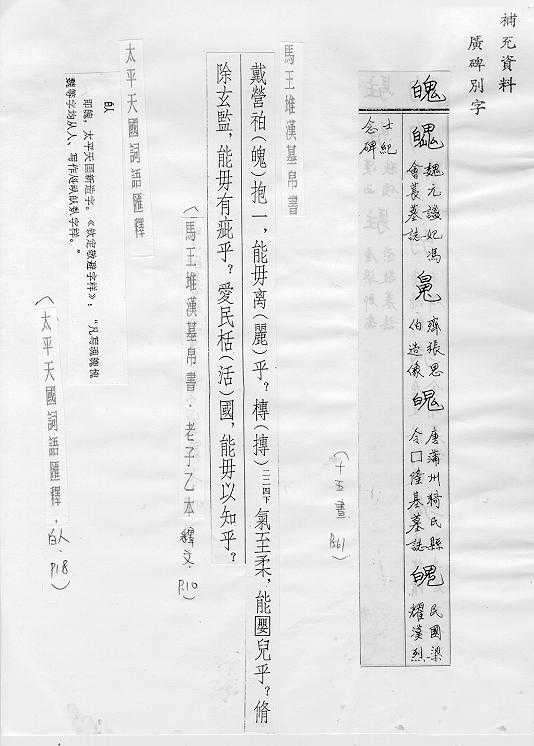 補充資料
廣碑別字
魄
魏元諼妃馮
會䓘墓誌
齊張思
伯造像
唐蒲州猗氏縣
令囗隆基墓誌
民國梁
耀漢烈
士紀
念碑
(十五畫 P.361)
馬王堆漢墓帛書
戴營袙(魄)抱一,能毋离(離)乎?槫(摶)二二四下氣至柔,能嬰兒乎?脩
除玄監,能毋有疵乎?愛民栝(活)國,能毋以知乎?
(馬王堆漢墓帛書.老子乙本釋文.P.10)
太平天國詞語匯釋
即魄。太平天囯新造字。《欽定敬避字样》:“凡写魂魄
魏等字均从人,
(太平天國詞語匯釋.白人.P.18)